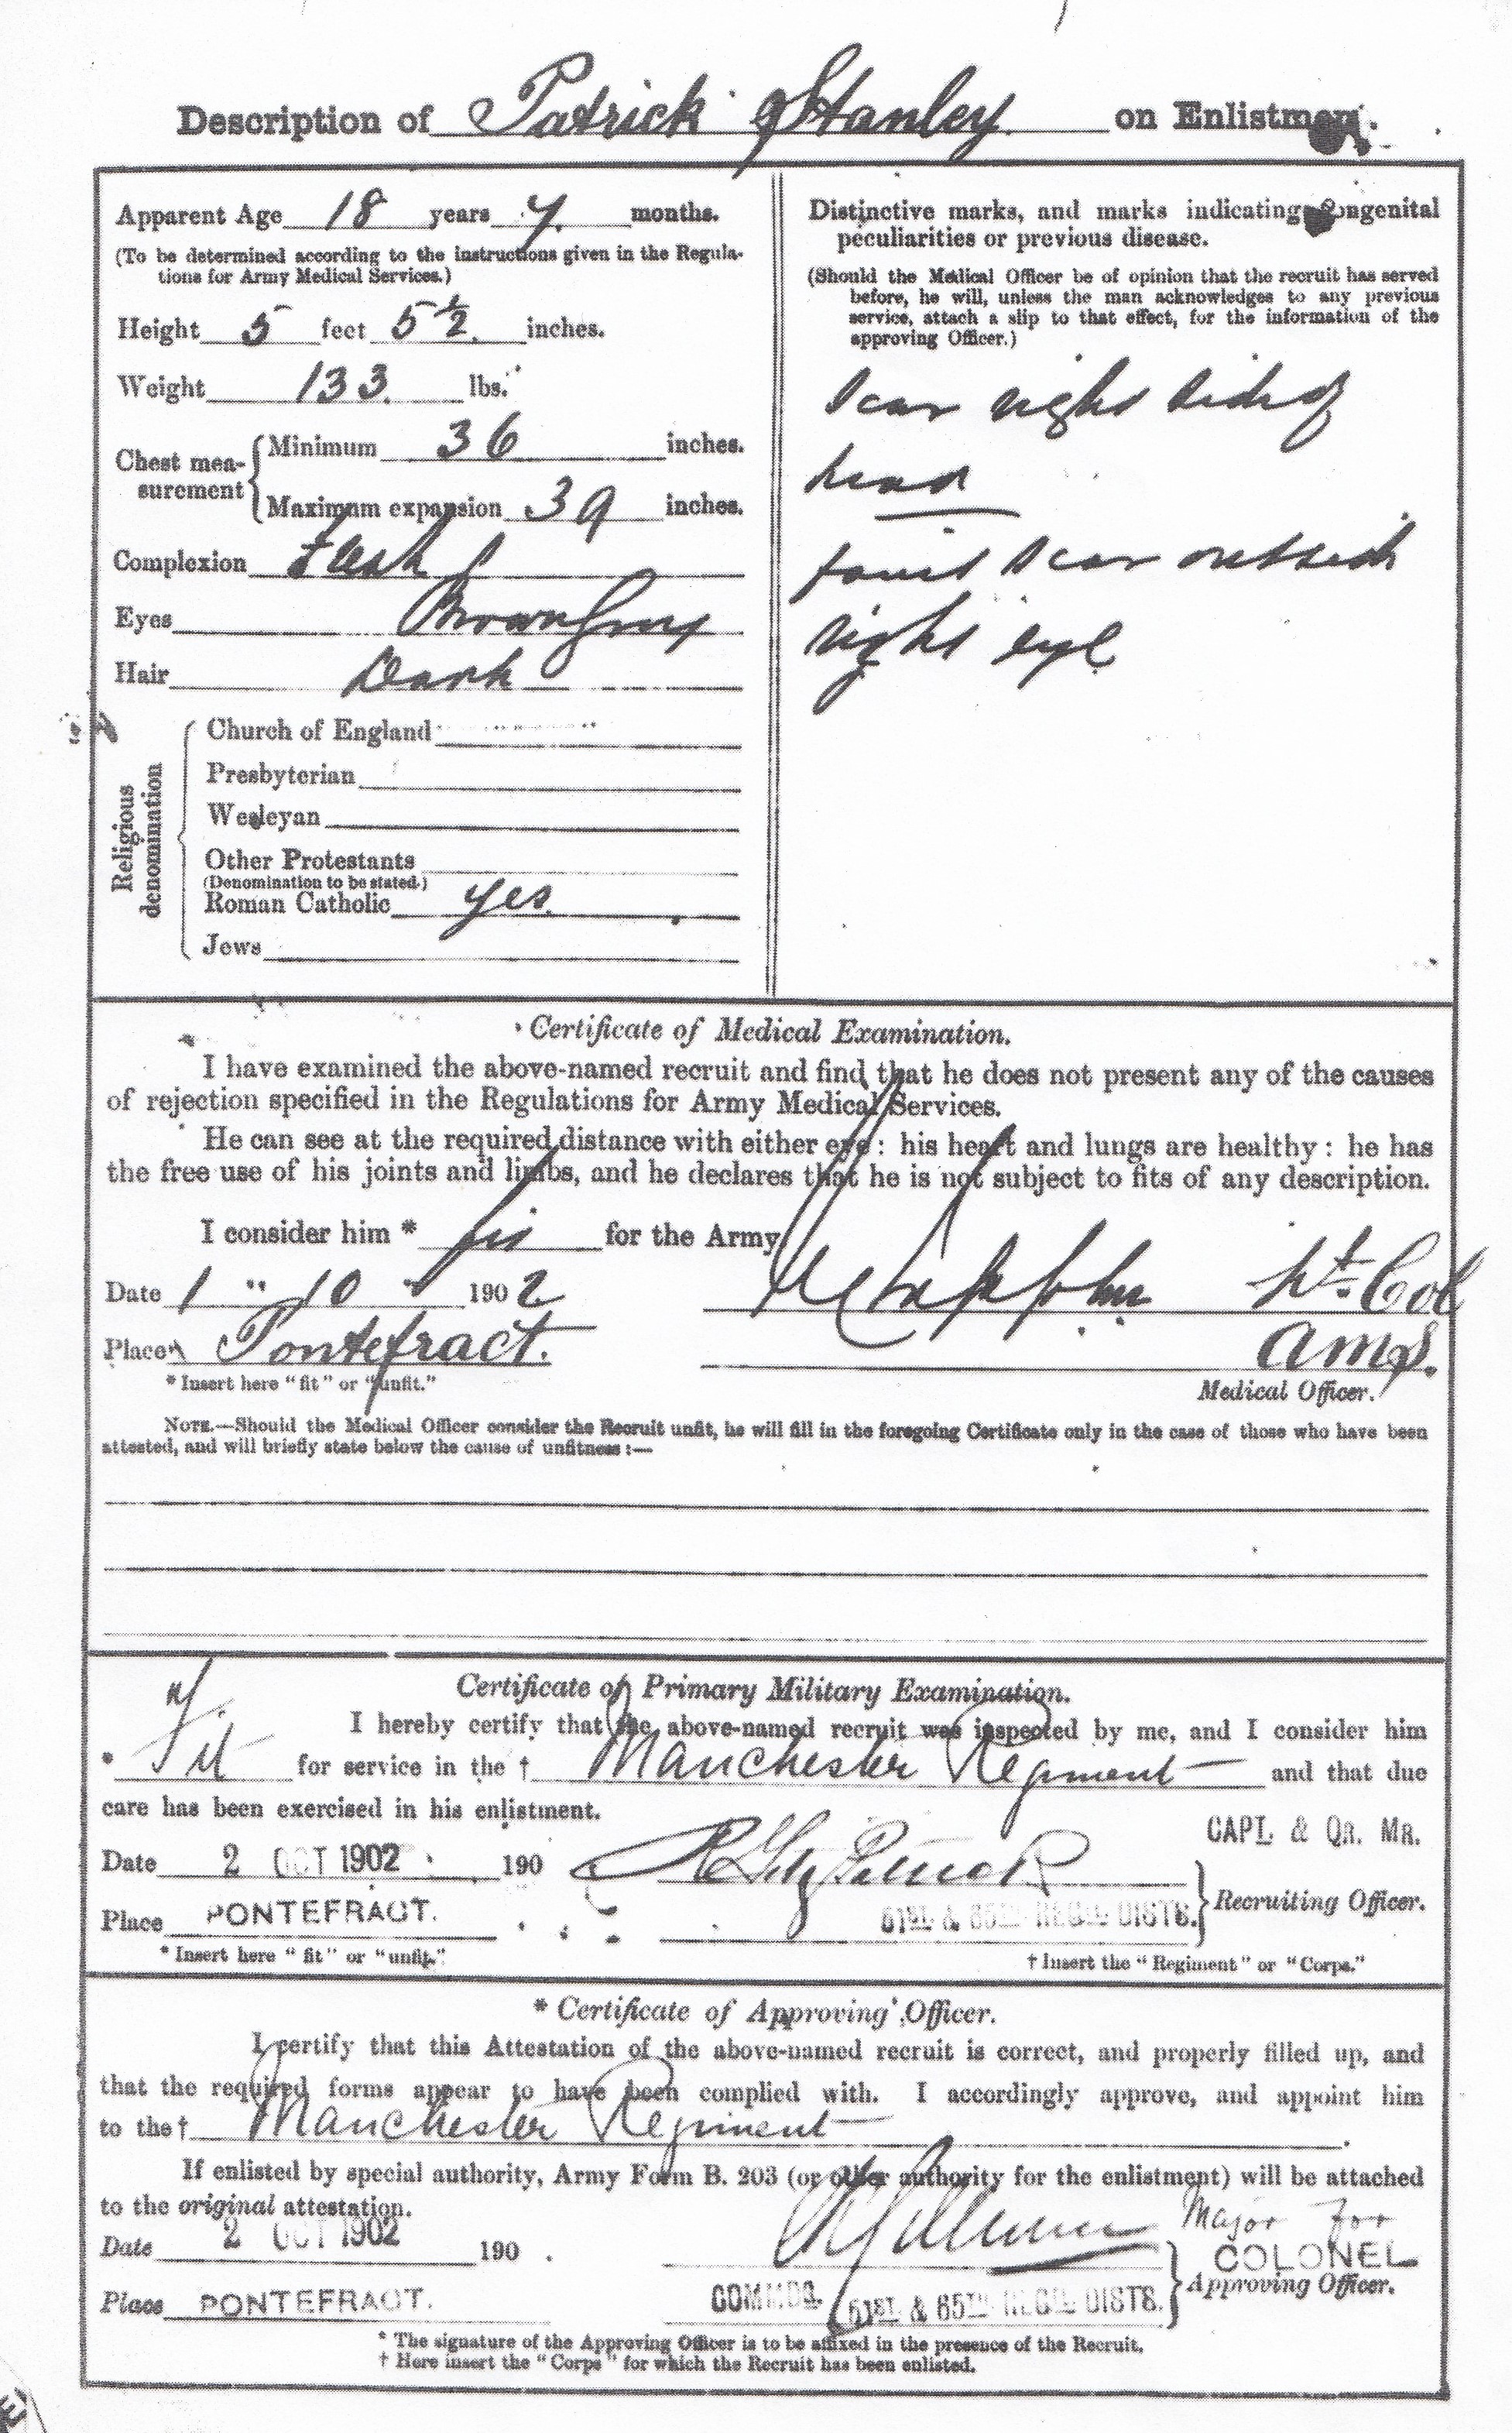 Description of Patrick Stanley on Enlistment.
Apparent Age 18 years 7 months.
(To be determined according to the instructions given in the Regula-
tions for Army Medical Services.)
Height 5 feet 5½ inches.
Weight 133 lbs.
Chest mea-
surement
Minimum 36 inches.
Maximum expansion 39 inches.
Complexion Fresh
Eyes Brown Grey
Hair Dark
Religious
denomination
Church of England
Presbyterian
Wesleyan
Other Protestants
(Denomination to be stated.)
Roman Catholic yes.
Jews
Distinctive marks, and marks indicating congenital
peculiarities or previous disease.
(Should the Medical Officer be of opinion that the recruit has served
before, he will, unless the man acknowledges to any previous
service, attach a slip to that effect, for the information of the
approving Officer.)
Scar right side of
head
faint scar outside
right eye
Certificate of Medical Examination.
I have examined the above-named recruit and find that he does not present any of the causes
of rejection specified in the Regulations for Army Medical Services.
He can see at the required distance with either eye: his heart and lungs are healthy: he has
the free use of his joints and limbs, and he declares that he is not subject to fits of any description.
I consider him * fit for the Army
Date 1 " 10 " 1902 Lt. Col
Place Pontefract. AMS.
* Insert here "fit" or "unfit." Medical Officer.
NOTE.—Should the Medical Officer consider the Recruit unfit, he will fill in the foregoing Certificate only in the case of those who have been
attested, and will briefly state below the cause of unfitness:—
Certificate of Primary Military Examination.
I hereby certify that the above-named recruit was inspected by me, and I consider him
* Fit for service in the † Manchester Regiment and that due
care has been exercised in his enlistment.
CAPT. & QR. MR.
Date 2 OCT 1902 190 R FitzPatrick
Recruiting Officer.
Place PONTEFRACT. 51ST & 65TH REGTL DISTS.
* Insert here "fit" or "unfit." † Insert the "Regiment" or "Corps."
* Certificate of Approving Officer.
I certify that this Attestation of the above-named recruit is correct, and properly filled up, and
that the required forms appear to have been complied with. I accordingly approve, and appoint him
to the † Manchester Regiment
If enlisted by special authority, Army Form B. 203 (or other authority for the enlistment) will be attached
to the original attestation.
Major for
Date 2 OCT 1902 190 . COLONEL
Approving Officer.
Place PONTEFRACT. COMMDG. 51ST & 65TH REGTL DISTS.
* The signature of the Approving Officer is to be affixed in the presence of the Recruit.
† Here insert the "Corps" for which the Recruit has been enlisted.